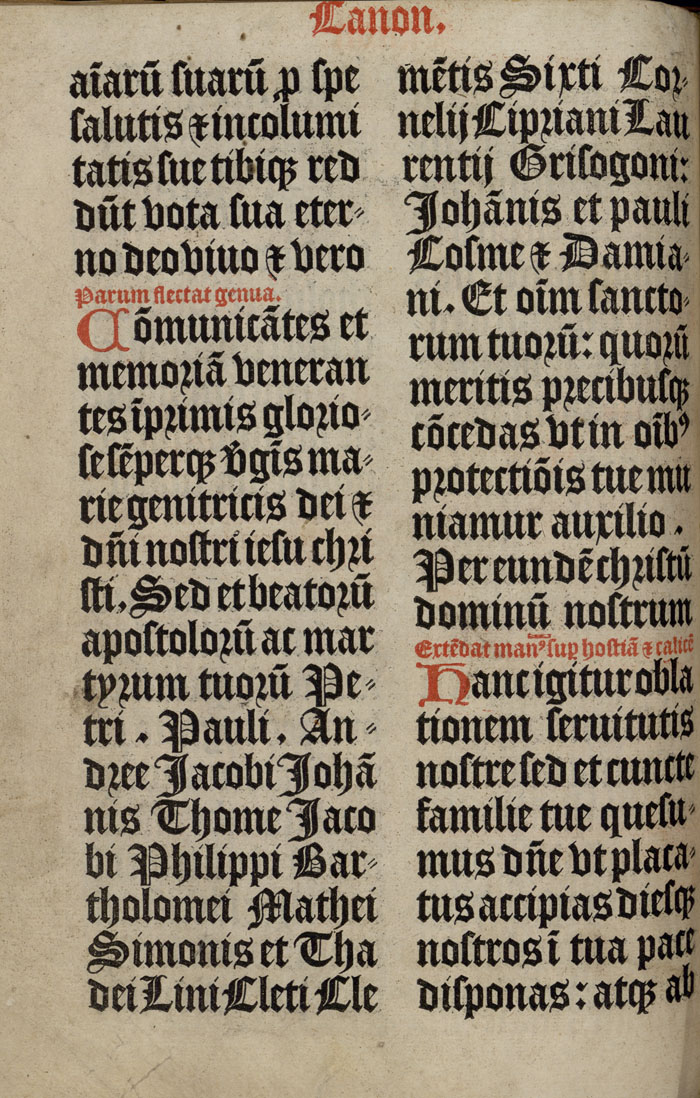 Canon.
aīarū suarū ꝓ spe
salutis ⁊ incolumi
tatis sue tibiqꝫ red
dūt vota sua eter⸗
no deo viuo ⁊ vero
Parum flectat genua.
Cōmunicātes et
memoriā veneran
tes īprimis glorio⸗
se sēperqꝫ v̄gīs ma⸗
rie genitricis dei ⁊
dn̄i nostri iesu chri
sti, Sed et beatorū
apostolorū ac mar
tyrum tuorū Pe⸗
tri . Pauli . An⸗
dree Jacobi Johā
nis Thome Jaco
bi Philippi Bar⸗
tholomei Mathei
Simonis et Tha
dei Lini Cleti Cle
mētis Sixti Cor⸗
nelij Cipriani Lau
rentij Grisogoni:
Johānis et pauli
Cosme ⁊ Damia⸗
ni. Et oīm sancto⸗
rum tuorū: quorū
meritis precibusqꝫ
cōcedas vt in oīb⁹
protectiōis tue mu
niamur auxilio .
Per eundē christū
dominū nostrum
Extēdat man⁹ suꝑ hostiā ⁊ calicē
Hanc igitur obla
tionem seruitutis
nostre sed et cuncte
familie tue quesu⸗
mus dn̄e vt placa⸗
tus accipias diesqꝫ
nostros ī tua pace
disponas: atqꝫ ab